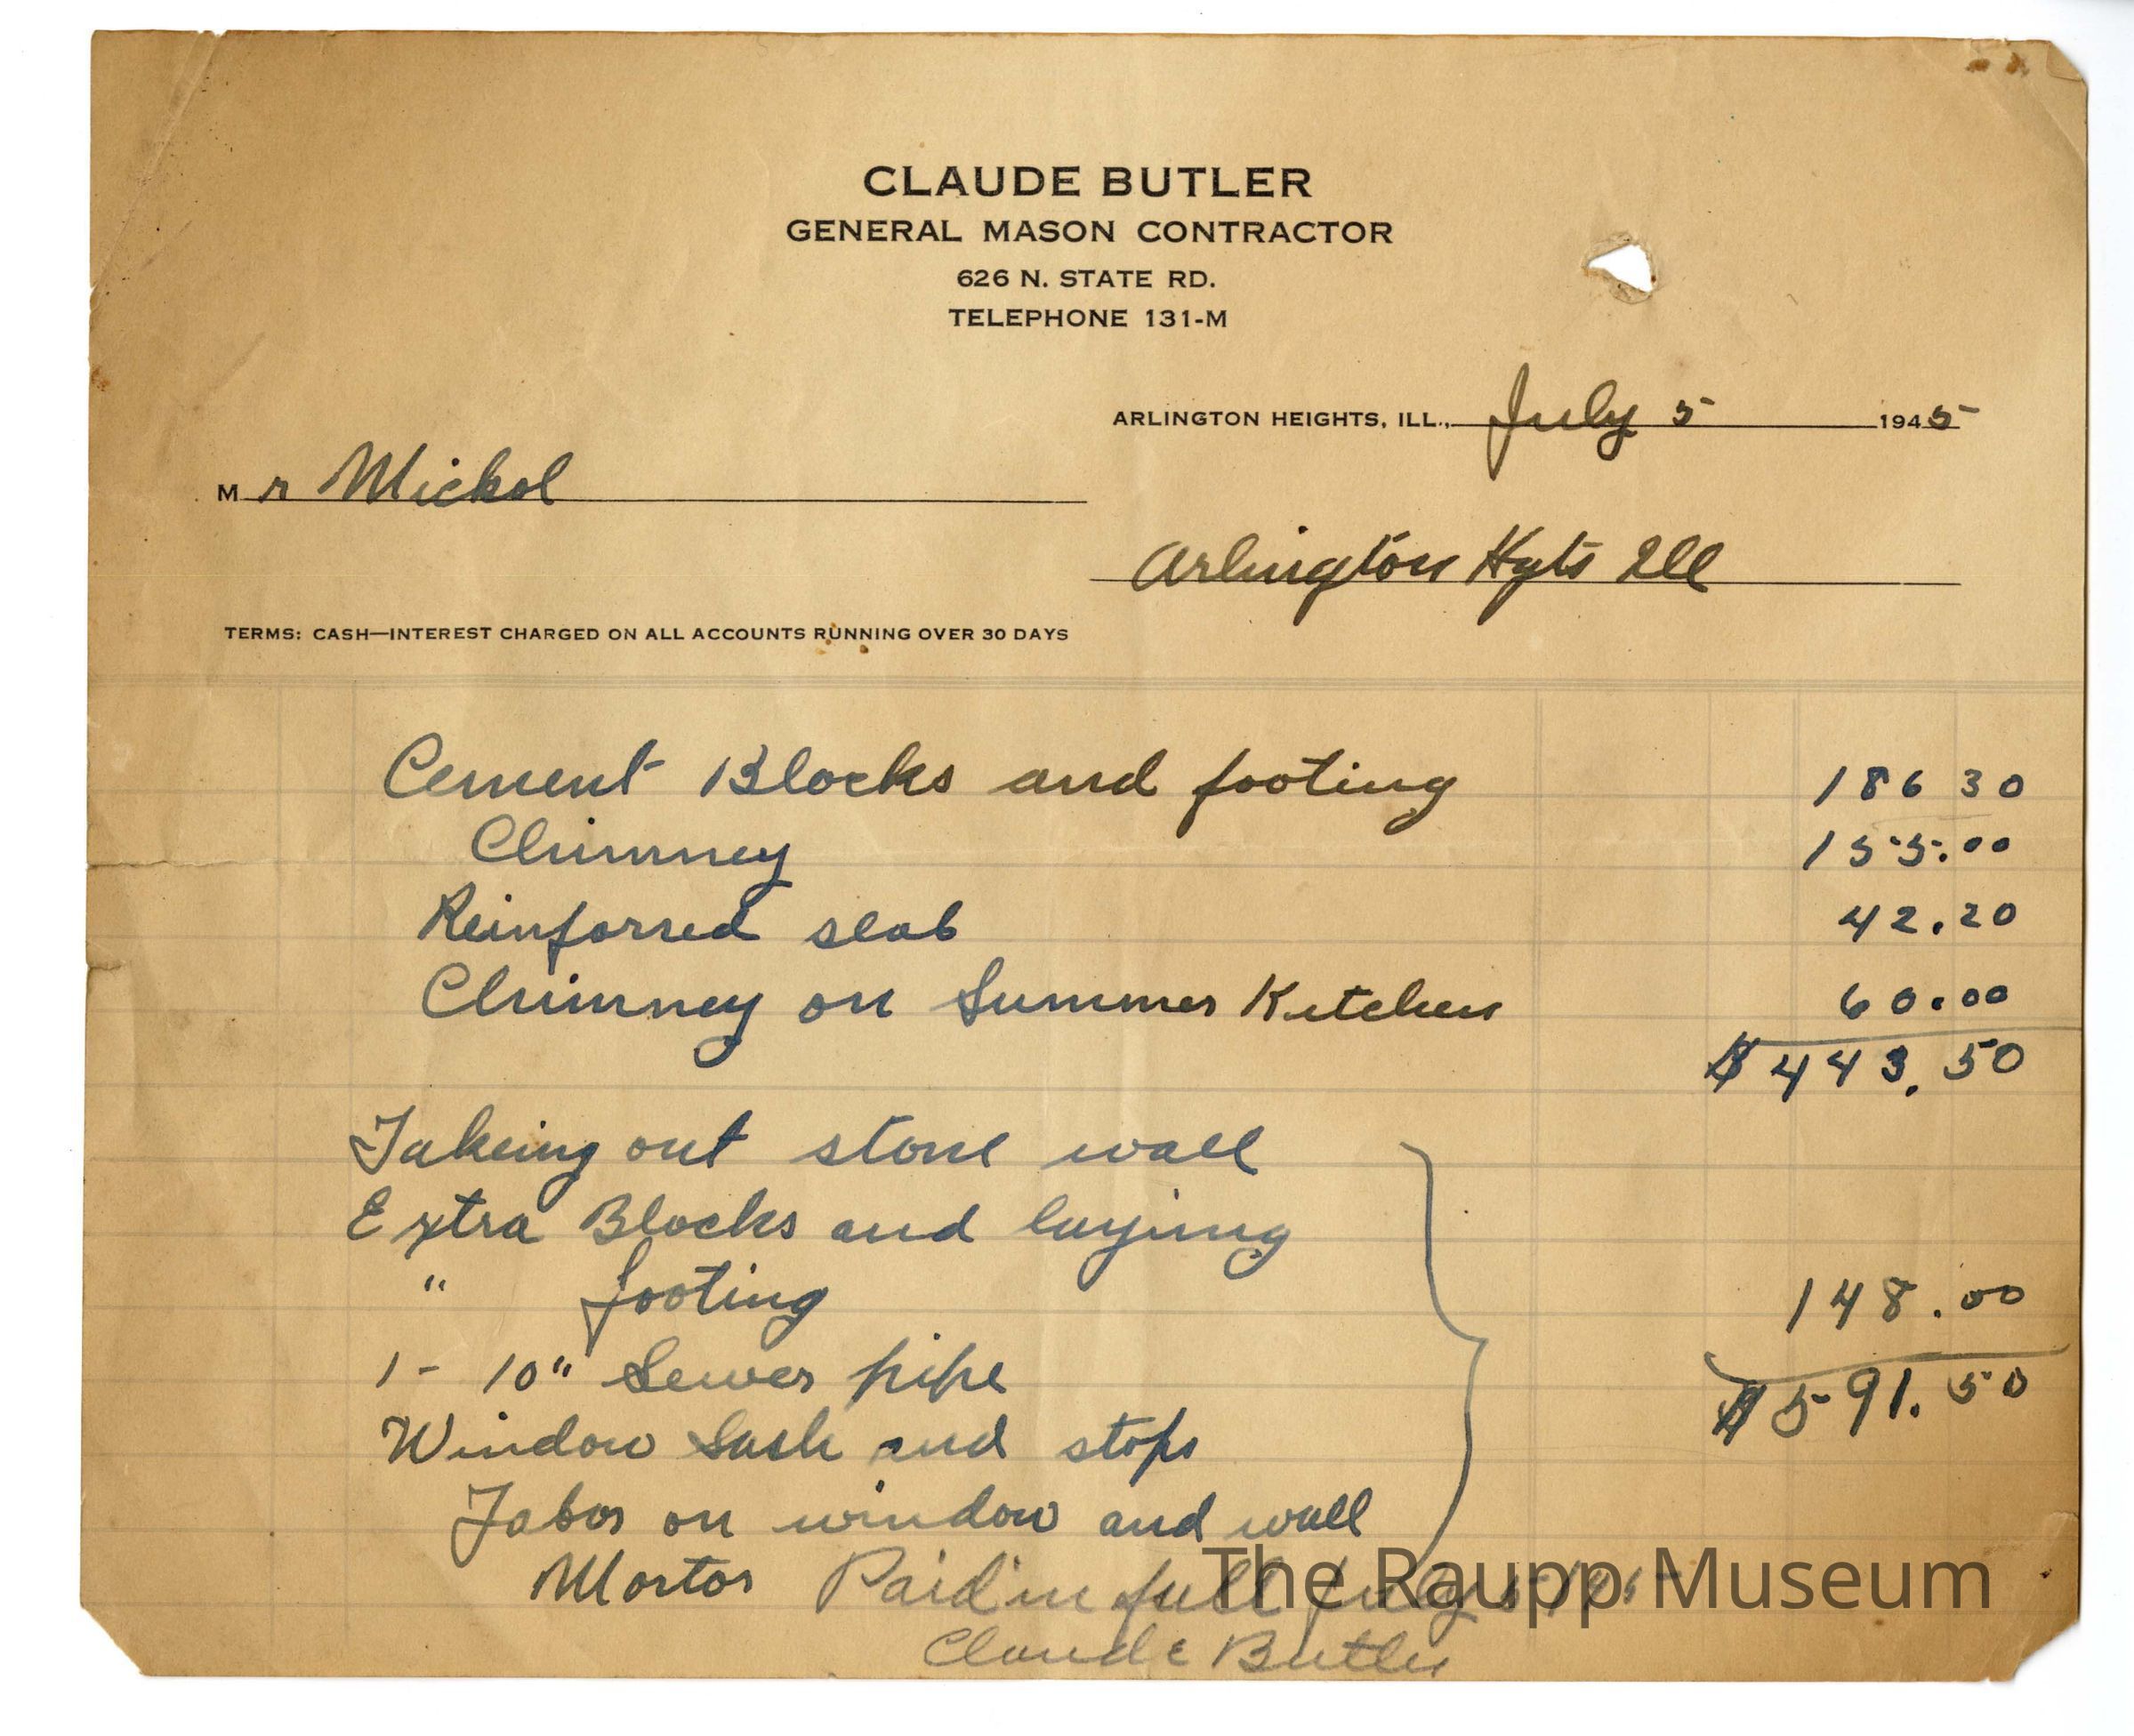 CLAUDE BUTLER
GENERAL MASON CONTRACTOR
626 N. STATE RD.
TELEPHONE 131-M
ARLINGTON HEIGHTS, ILL., July 5 1945
Mr Mickol
Arlington Hgts Ill
TERMS: CASH—INTEREST CHARGED ON ALL ACCOUNTS RUNNING OVER 30 DAYS
Cement Blocks and footing 186 30
Chimney 155.00
Reinforsed slab 42.20
Chimney on Summer Kitchen 60.00
$443.50
Takeing out stone wall
Extra Blocks and laying
" footing 148.00
1- 10" Sewer pipe
$591.50
Window Sash and stops
Labor on window and wall
Mortor Paid in full July 5
Claude Butler
The Raupp Museum